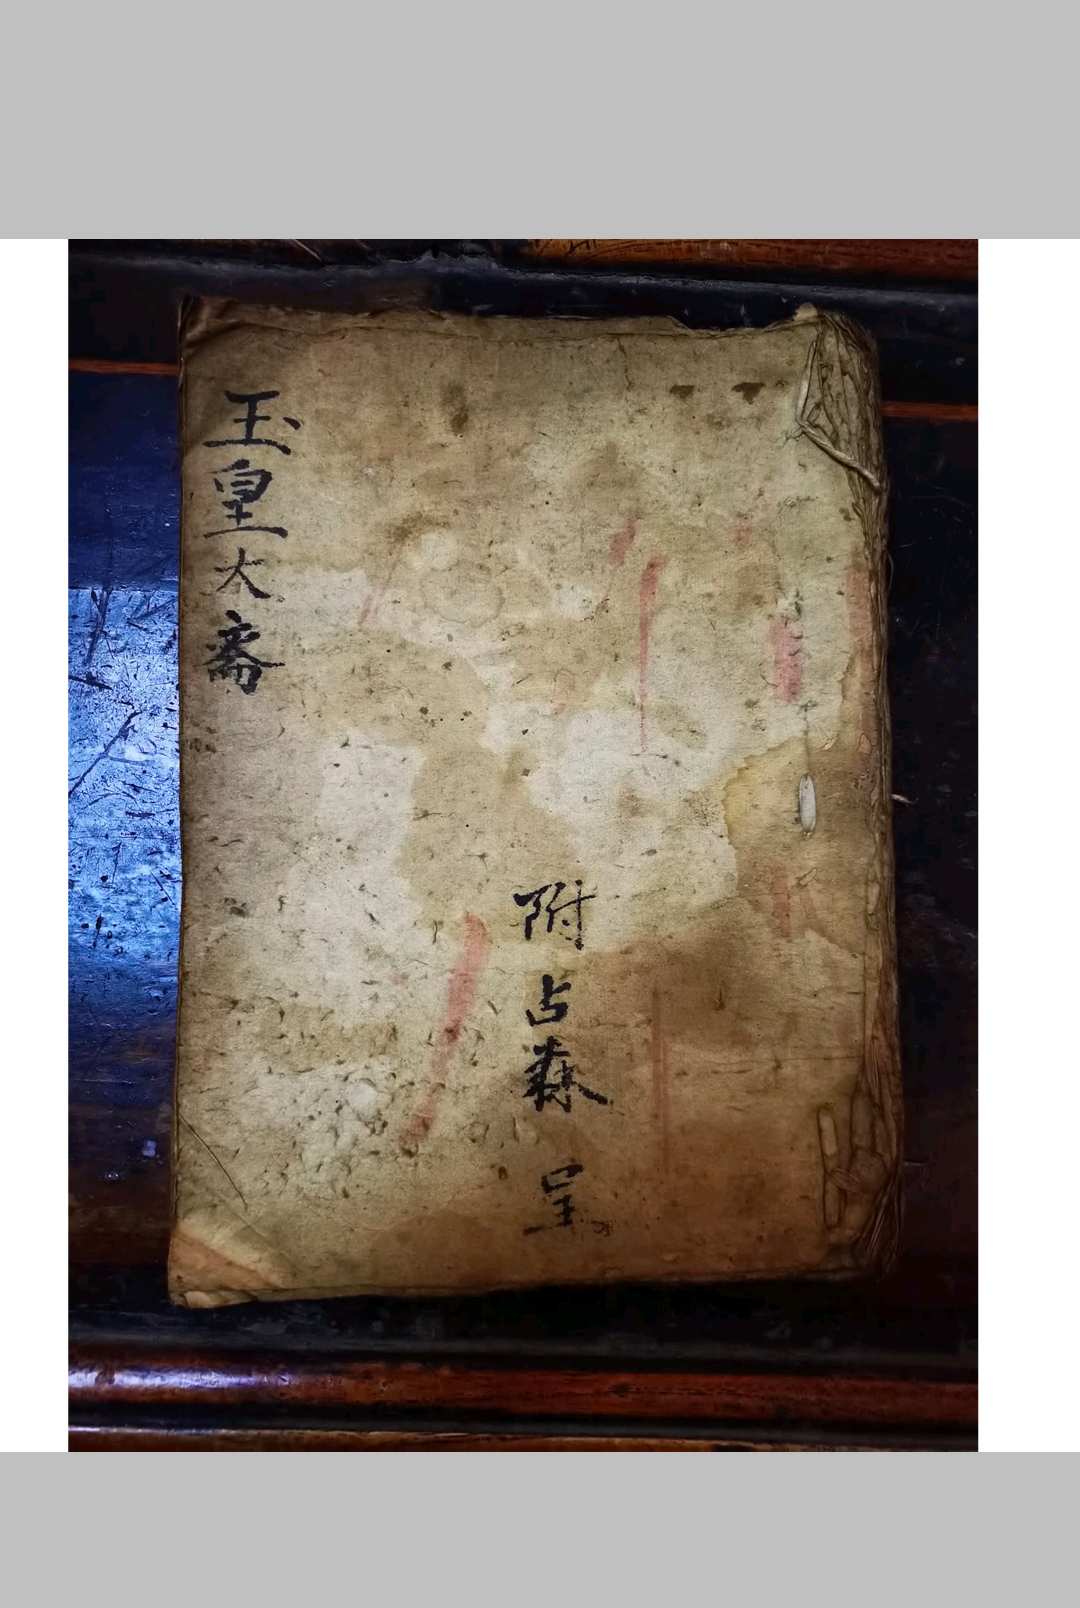 玉皇大斎
附占森 呈